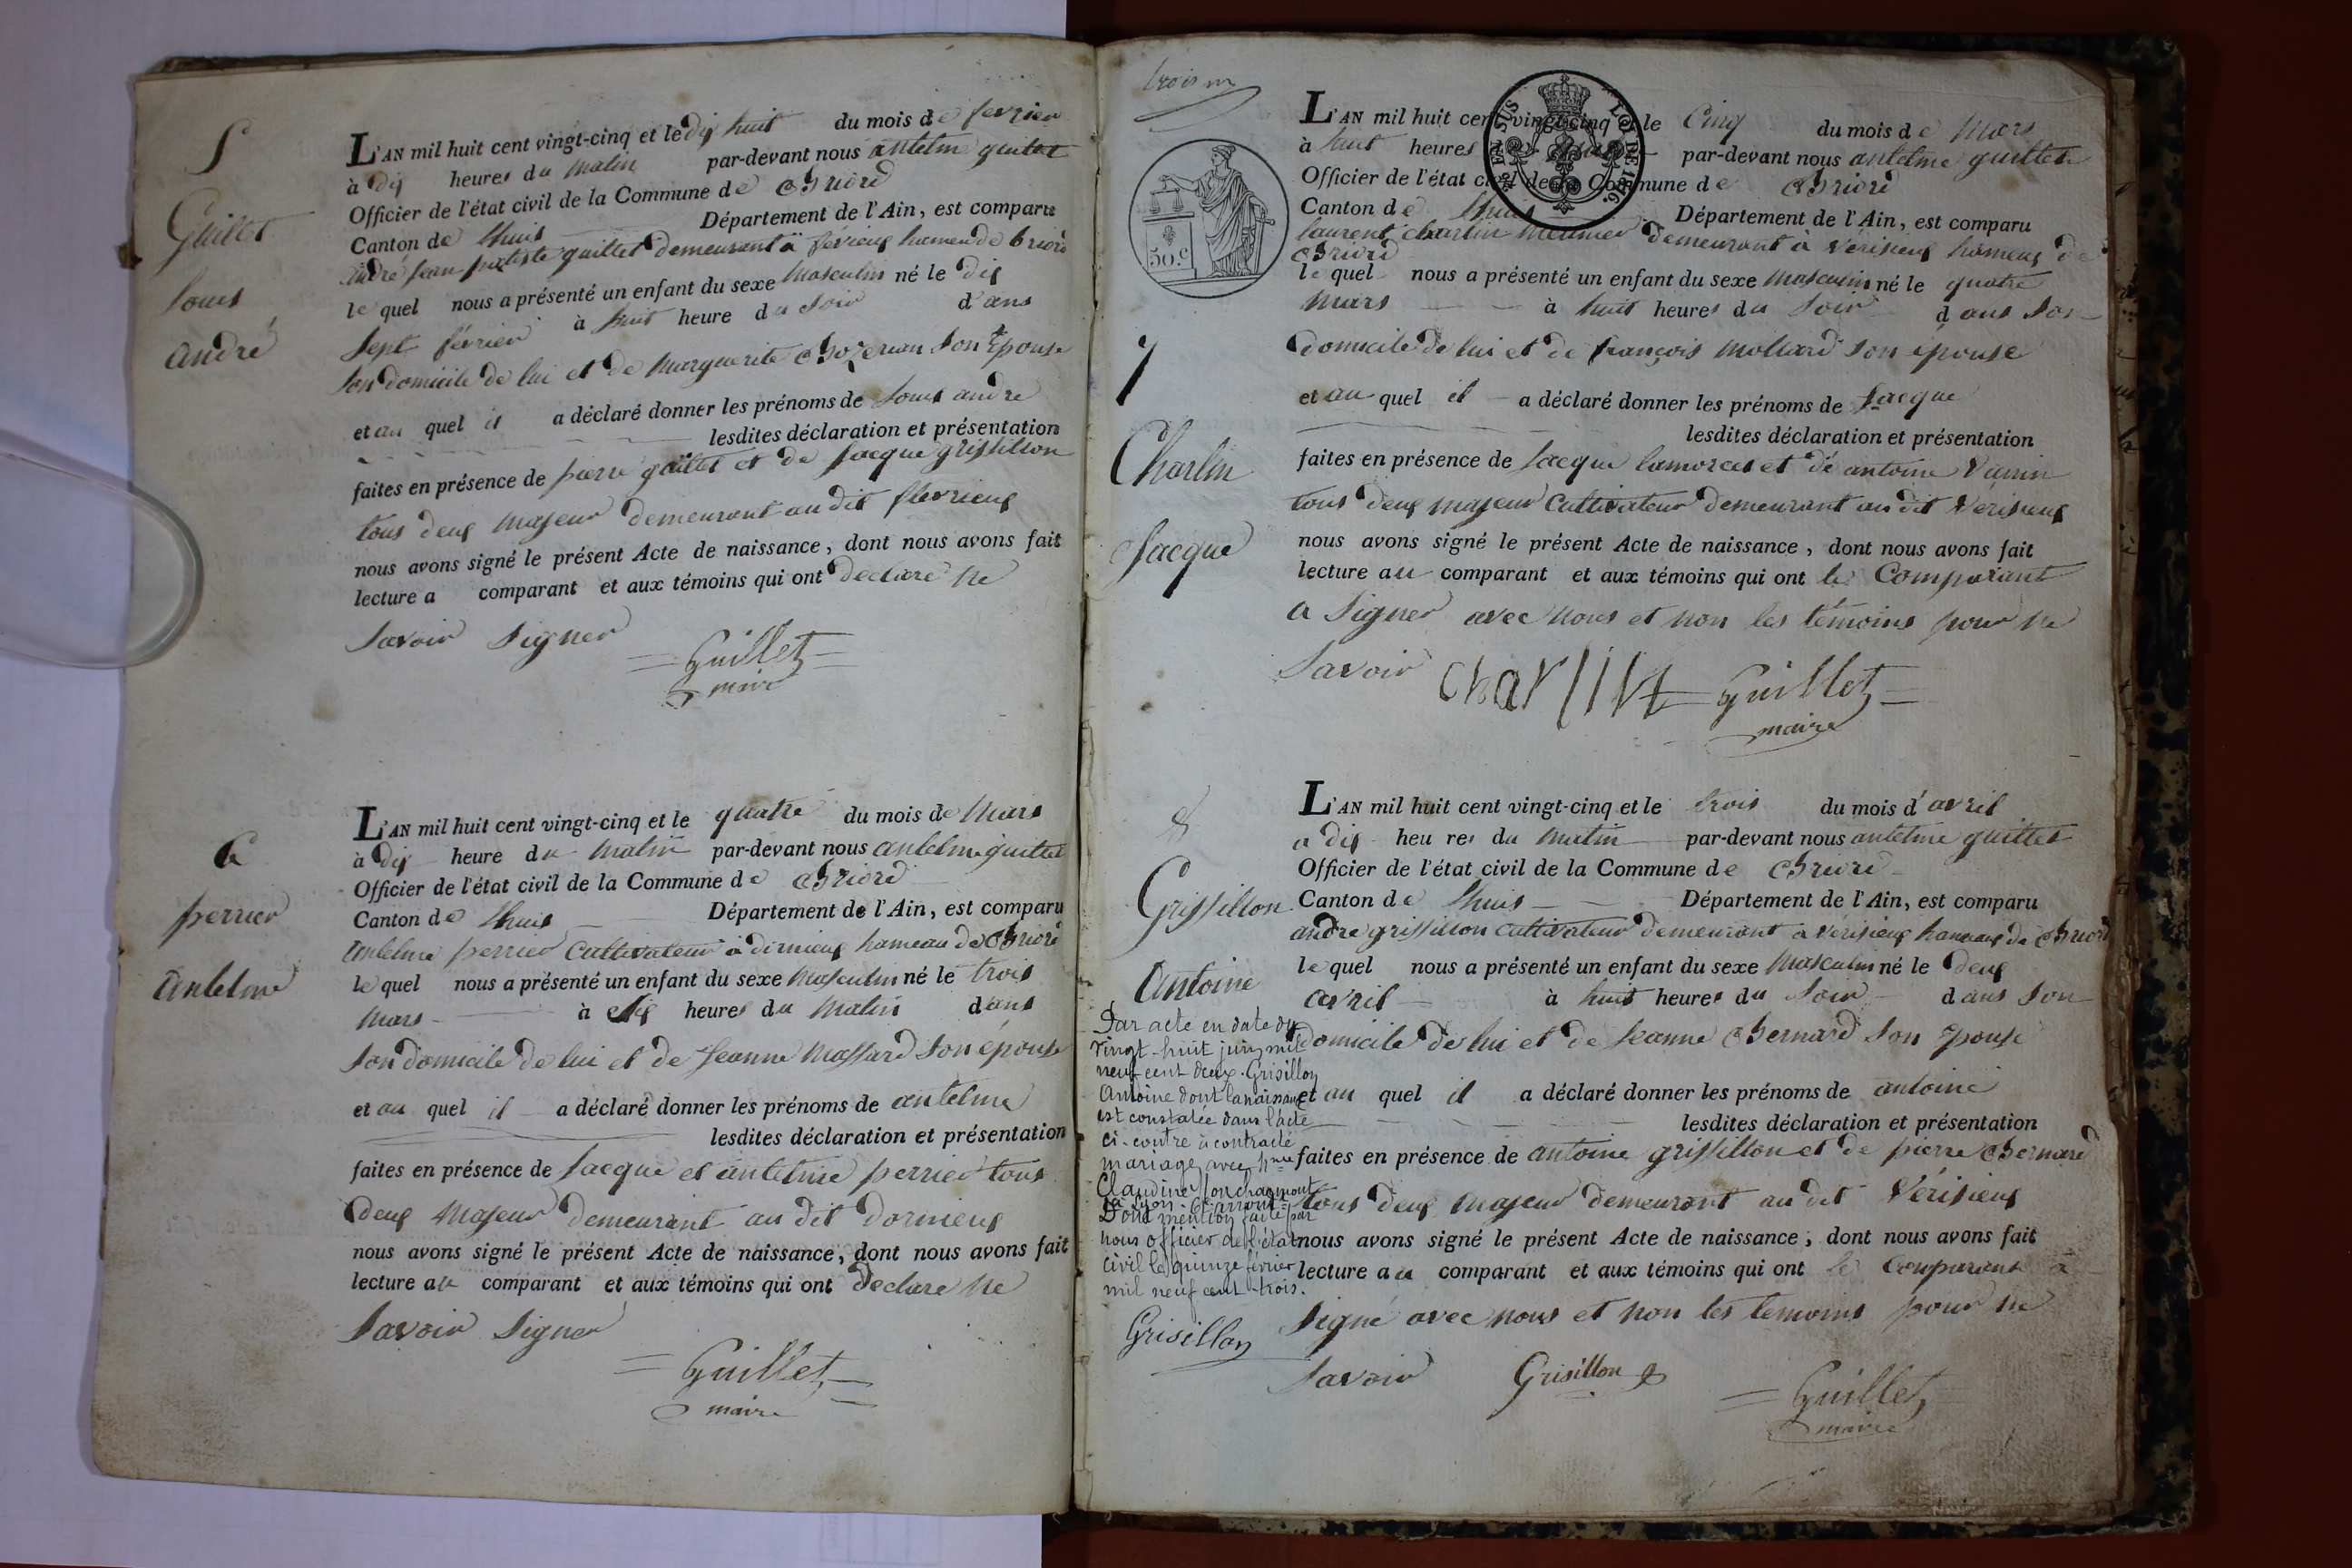 5
Guillet
Louis
André
L'AN mil huit cent vingt-cinq et le dix huit du mois de fevrier
à dix heures du matin par-devant nous antelme guillet
Officier de l'état civil de la Commune de Briord
Canton de Lhuis Département de l'Ain, est comparu
andré jean guillet demeurant à
le quel nous a présenté un enfant du sexe masculin né le dix
Sept février à huit heure du Soir dans
Son domicile de lui et de Marguerite Son Epouse
et au quel il a déclaré donner les prénoms de Louis andre
lesdites déclaration et présentation
faites en présence de pierre guillet et de Jacque grissillon
tous deux majeur demeurant au dit
nous avons signé le présent Acte de naissance, dont nous avons fait
lecture a comparant et aux témoins qui ont declaré ne
Savoir Signer
Guillet
maire
6
perrier
antelme
L'AN mil huit cent vingt-cinq et le quatre du mois de Mars
à dix heure du Matin par-devant nous antelme guillet
Officier de l'état civil de la Commune de Briord
Canton de Lhuis Département de l'Ain, est comparu
antelme perrier Cultivateur à hameau de Briord
le quel nous a présenté un enfant du sexe Masculin né le trois
Mars à dix heures du Matin dans
Son domicile de lui et de Jeanne Son épouse
et au quel il a déclaré donner les prénoms de antelme
lesdites déclaration et présentation
faites en présence de Jacque et antelme perrier tous
deux Majeur demeurant au dit
nous avons signé le présent Acte de naissance, dont nous avons fait
lecture au comparant et aux témoins qui ont declaré ne
Savoir Signer
Guillet
maire
50.c
LOI DE 1816.
7
Charlin
Jacque
L'AN mil huit cent vingt-cinq et le Cinq du mois de Mars
à huit heures du par-devant nous antelme guillet
Officier de l'état civil de la Commune de Briord
Canton de Lhuis Département de l'Ain, est comparu
laurent charlin demeurant à Vérisieux hameux de
Briord
le quel nous a présenté un enfant du sexe Masculin né le quatre
Mars à huit heures du Soir dans Son
domicile de lui et de françois Mollard Son épouse
et au quel il a déclaré donner les prénoms de Jacque
lesdites déclaration et présentation
faites en présence de Jacque et de antoine
tous deux majeur Cultivateur demeurant au dit Verisieux
nous avons signé le présent Acte de naissance, dont nous avons fait
lecture au comparant et aux témoins qui ont le Comparant
a Signer avec Nous et non les témoins pour ne
Savoir
Charlin Guillet
maire
8
Grissillon
Antoine
L'AN mil huit cent vingt-cinq et le trois du mois d'avril
a dix heures du Matin par-devant nous antelme guillet
Officier de l'état civil de la Commune de Briord
Canton de Lhuis Département de l'Ain, est comparu
andre grissillon cultivateur demeurant a vérisieux hameaux de Briord
le quel nous a présenté un enfant du sexe Masculin né le deux
avril à huit heures du Soir dans Son
domicile de lui et de Jeanne Bernard Son Epouse
et au quel il a déclaré donner les prénoms de antoine
lesdites déclaration et présentation
faites en présence de antoine grissillon et de pierre Bernard
tous deux Majeur demeurant au dit Vérisieux
nous avons signé le présent Acte de naissance, dont nous avons fait
lecture au comparant et aux témoins qui ont le Comparant a
Signé avec nous et non les temoins pour ne
Savoir
Grisillon
Guillet
maire
Par acte en date du
vingt-huit juin mil
neuf cent deux. Grisillon
Antoine dont la naissance
est constatée dans l'acte
ci-contre à contracté
mariage avec
Claudine
à Lyon
Dont mention faite par
nous officier de l'état
civil le quinze février
mil neuf cent trois.
Grisillon